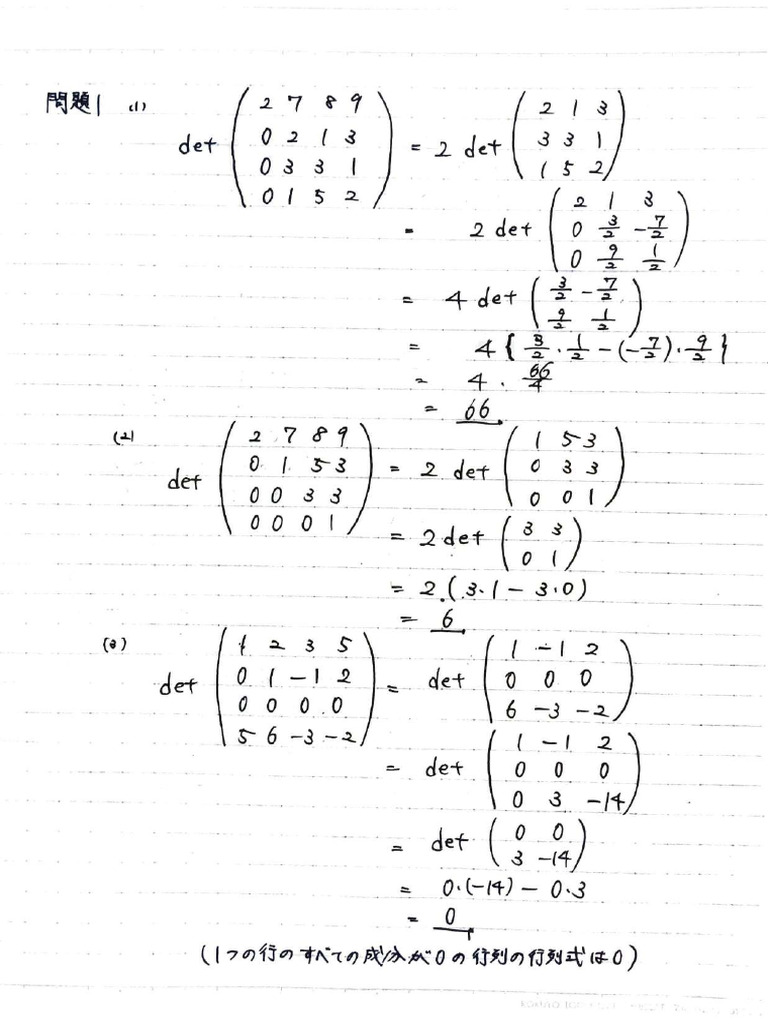 問題1 (1)
det ( 2 7 8 9
0 2 1 3
0 3 3 1
0 1 5 2 ) = 2 det ( 2 1 3
3 3 1
1 5 2 )
= 2 det ( 2 1 3
0 3/2 -7/2
0 9/2 1/2 )
= 4 det ( 3/2 -7/2
9/2 1/2 )
= 4 { 3/2 · 1/2 - (-7/2) · 9/2 }
= 4 · 66/4
= 66
(2)
det ( 2 7 8 9
0 1 5 3
0 0 3 3
0 0 0 1 ) = 2 det ( 1 5 3
0 3 3
0 0 1 )
= 2 det ( 3 3
0 1 )
= 2 · (3·1 - 3·0)
= 6
(3)
det ( 1 2 3 5
0 1 -1 2
0 0 0 0
5 6 -3 -2 ) = det ( 1 -1 2
0 0 0
6 -3 -2 )
= det ( 1 -1 2
0 0 0
0 3 -14 )
= det ( 0 0
3 -14 )
= 0·(-14) - 0·3
= 0
(1つの行のすべての成分が0の行列の行列式は0)